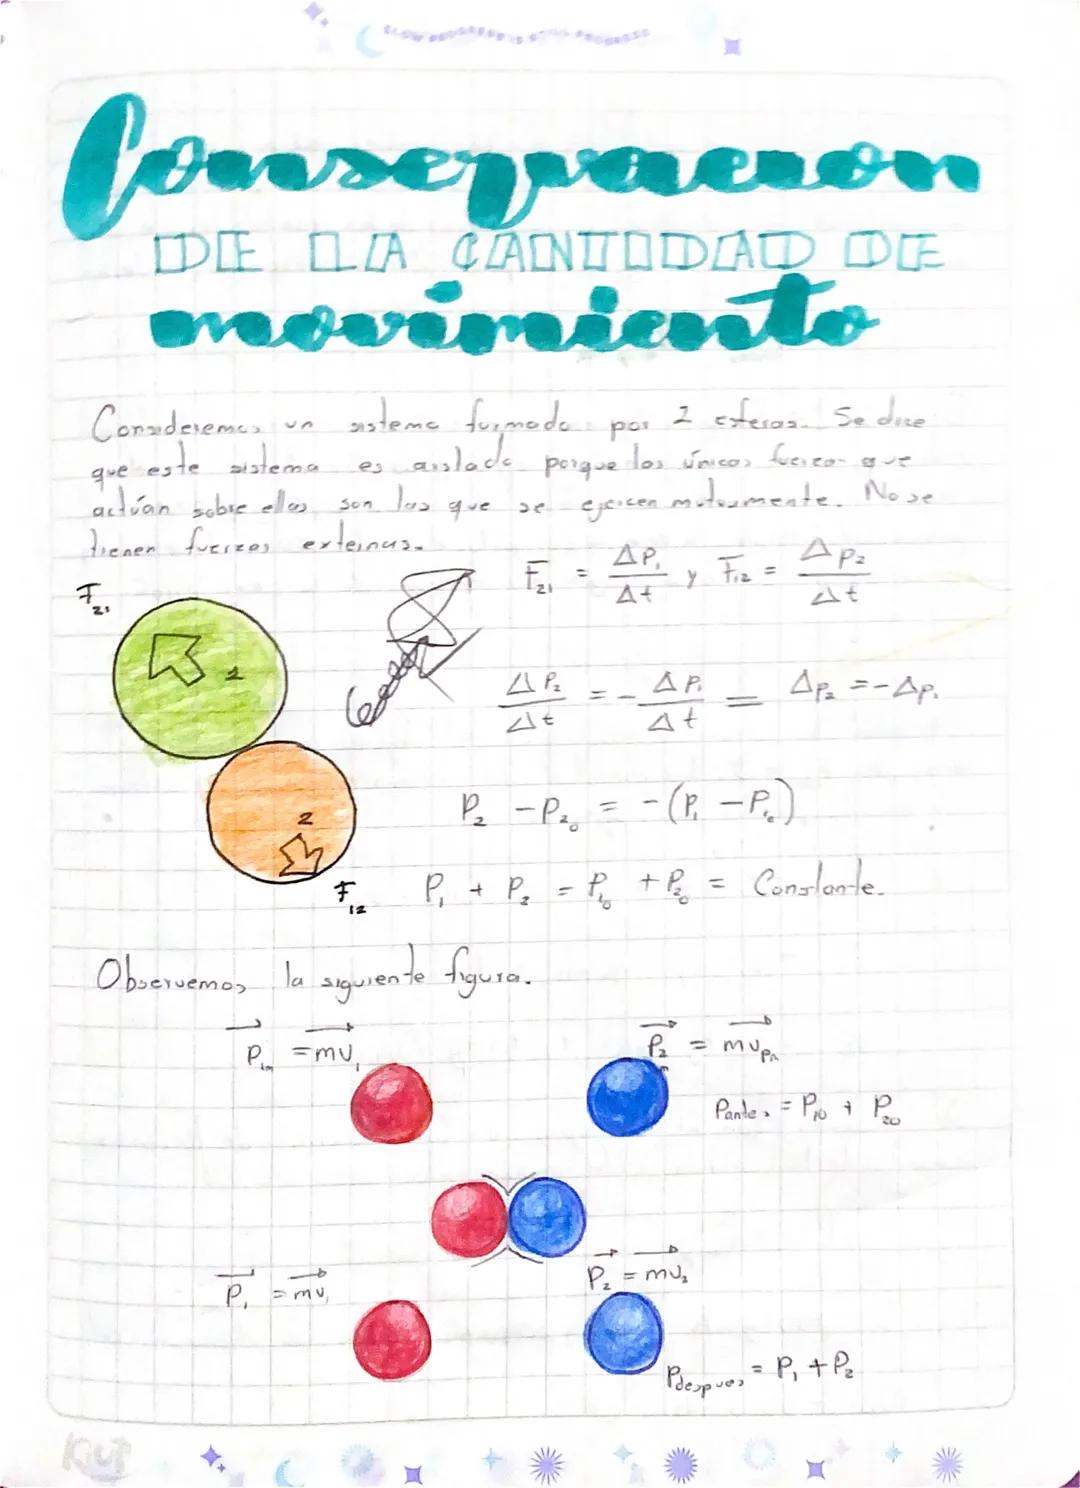 SLOW PROGRESS IS STILL PROGRESS
Conservacion
DE LA CANTIDAD DE
movimiento
Consideremos un sistema formado por 2 esferas. Se dice
que este sistema es aislado porque las únicas fuerzas que
actúan sobre ellas son las que se ejercen mutuamente. No se
tienen fuerzas externas.
F₂₁ = ΔP₁/Δt y F₁₂ = ΔP₂/Δt
F₂₁
1
ΔP₂/Δt = - ΔP₁/Δt = ΔP₂ = -ΔP₁
P₂ - P₂₀ = -(P₁ - P₁₀)
2
F₁₂
P₁ + P₂ = P₁₀ + P₂₀ = Constante.
Observemos la siguiente figura.
P₁ₙ = mv₁
P₂ₙ = mv
Pantes = P₁₀ + P₂₀
P₁ = mv₁
P₂ = mv₂
Pdespues = P₁ + P₂
Kiut